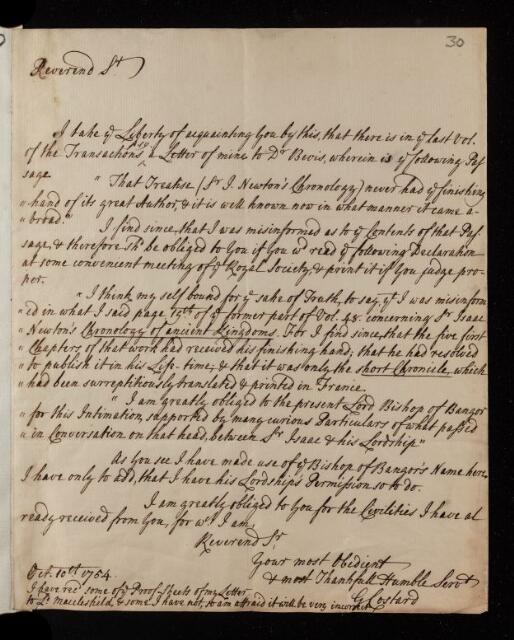 30
Reverend Sr.
I take ye Liberty of acquainting You by this, that there is in ye last Vol.
of the Transactions a Letter of mine to Dr Bevis, wherein is ye following Pas
sage.
" That Treatise (Sr I. Newton's Chronology) never had ye finishing
" hand of its great Author, & it is well known now in what manner it came a-
" broad."
I find since, that I was misinformed as to ye Contents of that Pas-
sage, & therefore shd be obliged to You if You wd read ye following Declaration
at some convenient meeting of ye Royal Society, & print it if You judge pro-
per.
" I think my self bound for ye sake of Truth, to say, yt I was misinform
" ed in what I said page 19th of ye former part of Vol. 48. concerning Sr Isaac
" Newton's Chronology of ancient Kingdoms. For I find since, that the five first
" Chapters of that work had received his finishing hand; that he had resolved
" to publish it in his Life-time; & that it was only the short Chronicle, which
" had been surreptitiously translated & printed in France.
" I am greatly obliged to the present Lord Bishop of Bangor
" for this Intimation, supported by many curious Particulars of what passed
" in Conversation on that head, between Sr Isaac & his Lordship."
As You see I have made use of ye Bishop of Bangor's Name here,
I have only to add, that I have his Lordship's Permission so to do.
I am greatly obliged to You for the Civilities I have al
ready received from You, for wch I am,
Reverend Sr.
Your most Obedient
& most Thankfull Humble Servt
G Costard
Oct. 10th 1754.
I have recd some of ye Proof-Sheets of my Letter
to Ld Macclesfield, & some I have not, so am afraid it will be very incorrect.